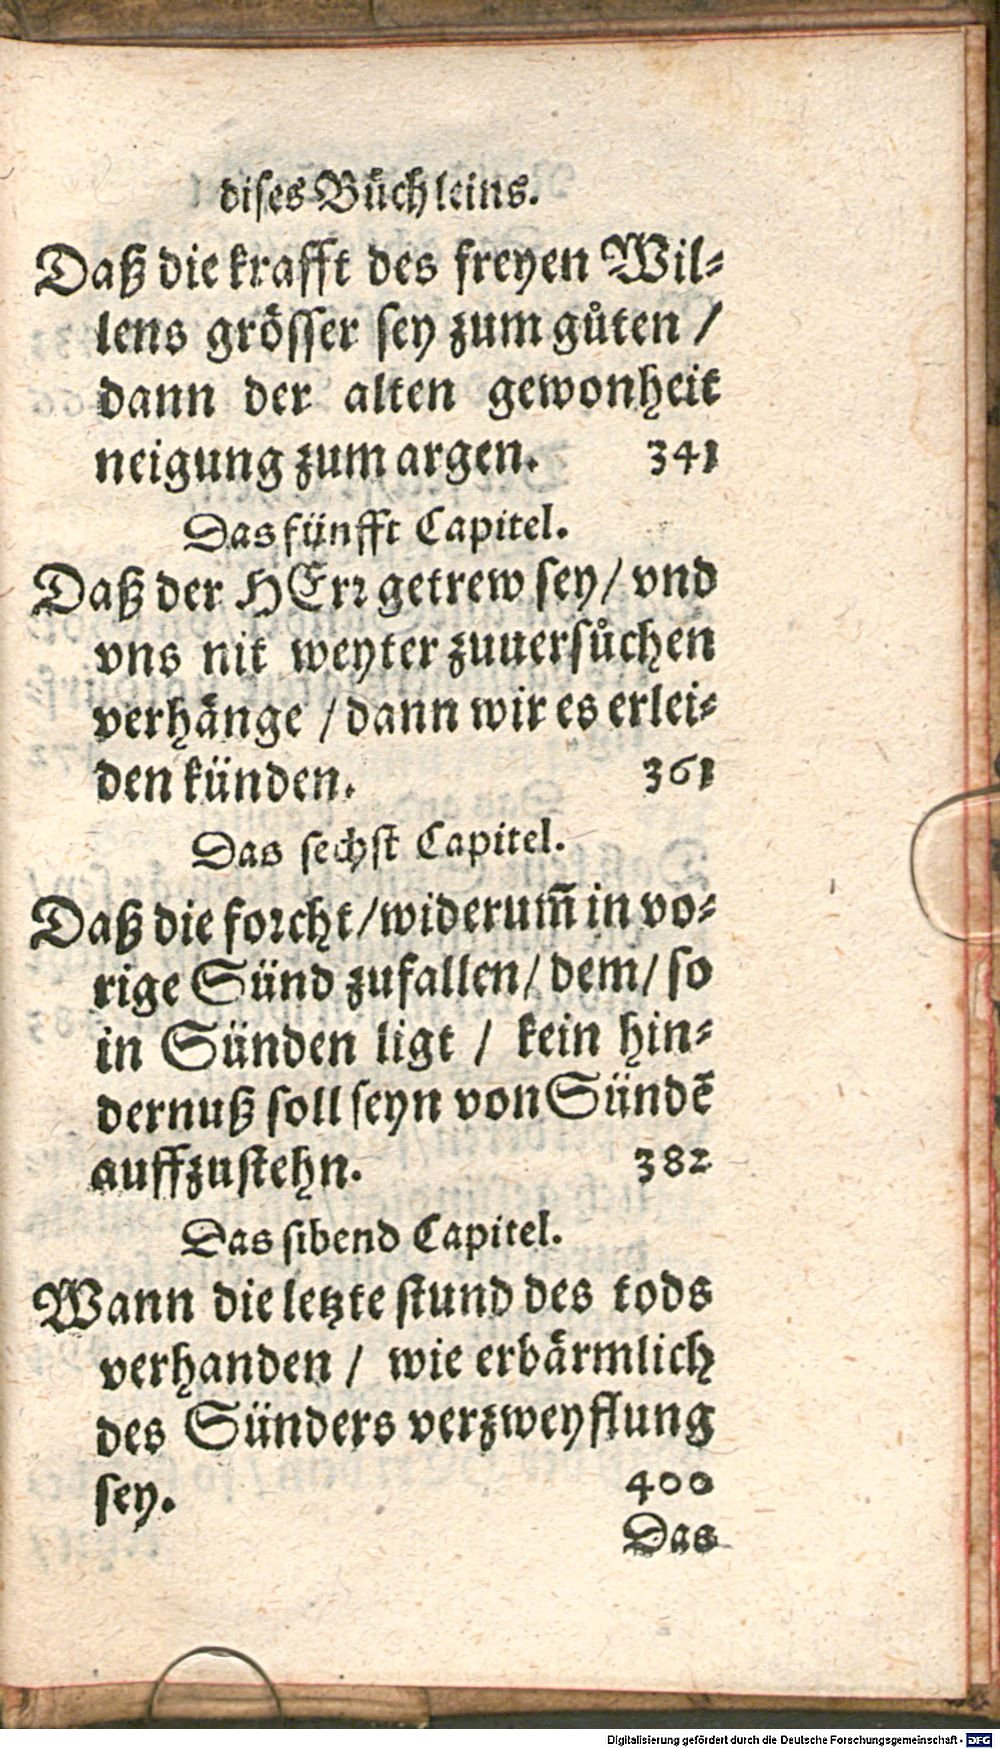 diſes Buͤchleins.
Daß die krafft des freyen Wil⸗
lens groͤſſer ſey zum guͦten /
dann der alten gewonheit
neigung zum argen. 341
Das fuͤnfft Capitel.
Daß der HErꝛ getrew ſey / vnd
vns nit weyter zuuerſuͦchen
verhaͤnge / dann wir es erlei⸗
den kuͤnden. 361
Das ſechſt Capitel.
Daß die foꝛcht / widerum̃ in vo⸗
rige Suͤnd zufallen / dem / ſo
in Suͤnden ligt / kein hin⸗
dernuß ſoll ſeyn von Suͤndẽ
auffzuſtehn. 382
Das ſibend Capitel.
Wann die letzte ſtund des tods
verhanden / wie erbaͤrmlich
des Suͤnders verzweyflung
ſey. 400
Das
Digitalisierung gefördert durch die Deutsche Forschungsgemeinschaft - DFG